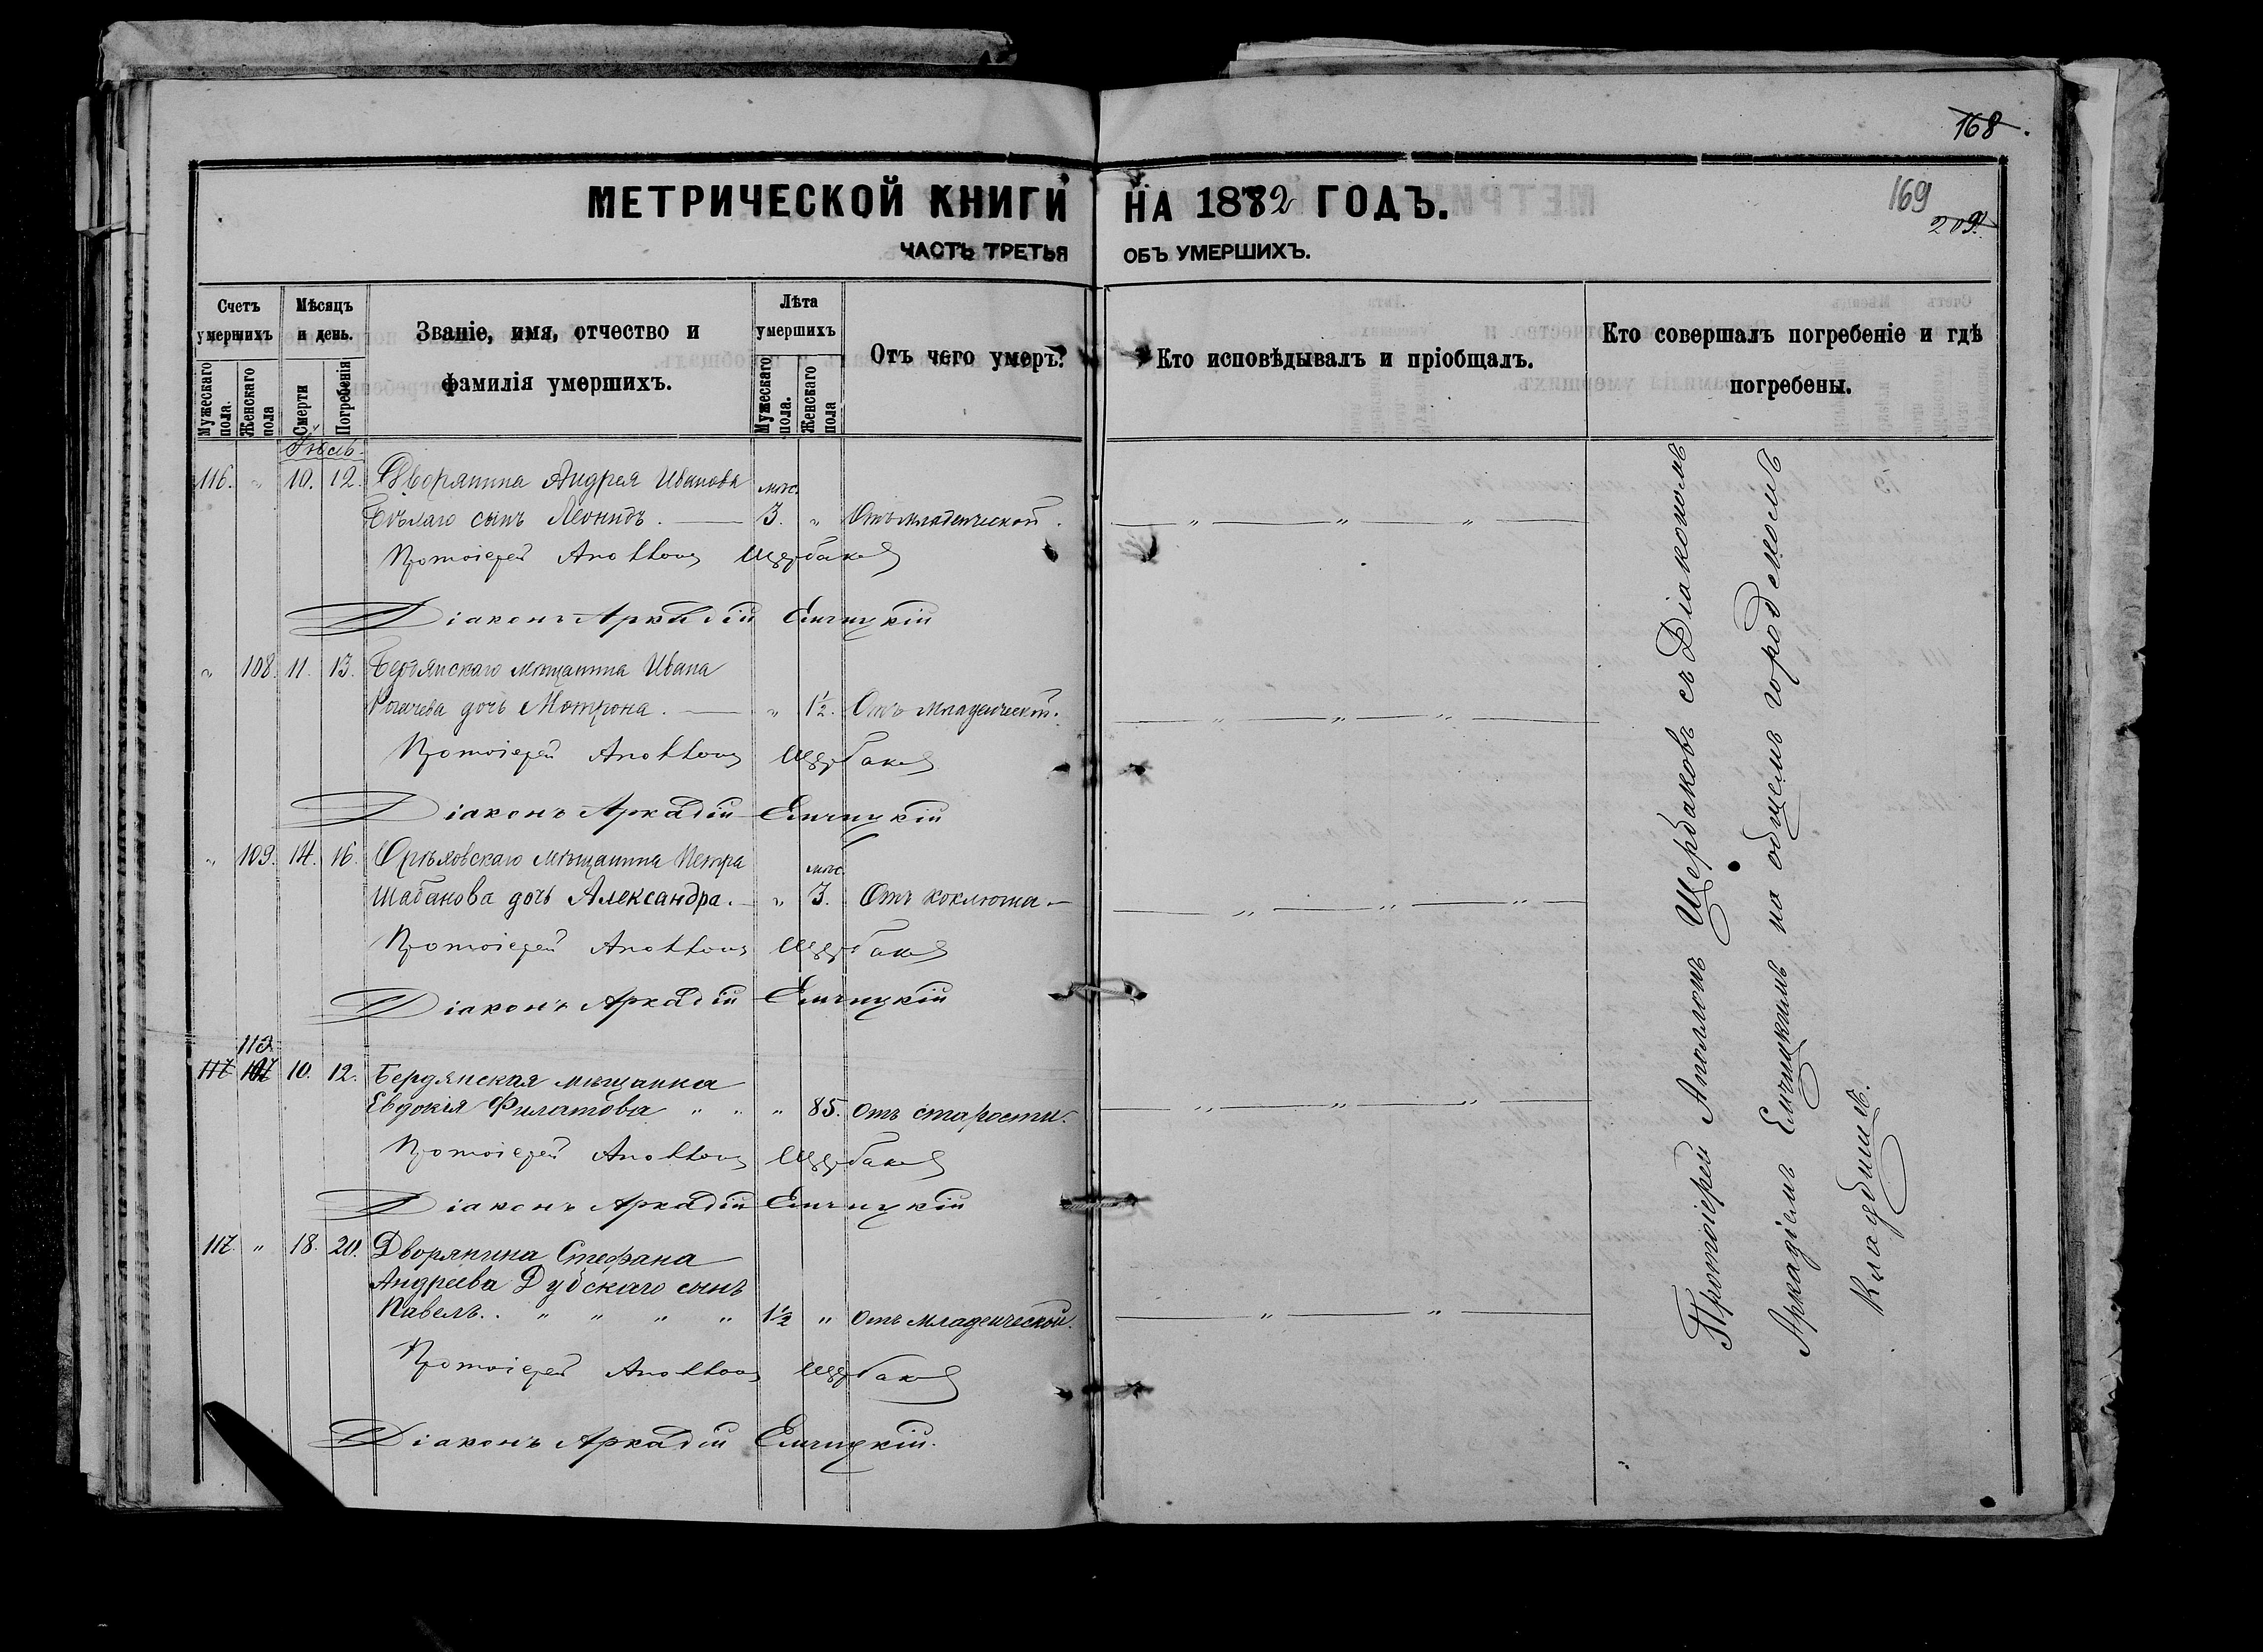 168.
МЕТРИЧЕСКОЙ КНИГИ НА 1882 ГОДЪ.
169
209.
ЧАСТЬ ТРЕТЬЯ ОБЪ УМЕРШИХЪ.
Счетъ умершихъ
Мѣсяцъ и день.
Званіе, имя, отчество и фамилія умершихъ.
Лѣта умершихъ
Отъ чего умеръ?
Кто исповѣдывалъ и пріобщалъ.
Кто совершалъ погребеніе и гдѣ погребены.
Мужескаго пола.
Женскаго пола
Смерти
Погребенія
Мужескаго пола.
Женскаго пола
116. " 10. 12. Дворянина Андрея Иванова мѣс.
Бѣлаго сынъ Леонидъ. 3. " Отъ младенческой. " " "
Протоіерей Аполлонъ Щербаковъ
Діаконъ Аркадій Елчицкій
" 108. 11. 13. Бердянскаго мѣщанина Ивана
дочь Мотрона. " 1½. Отъ младенческой. " " "
Протоіерей Аполлонъ Щербаковъ
Діаконъ Аркадій Елчицкій
" 109. 14. 16. Орѣховскаго мѣщанина Петра мѣс.
Шабанова дочь Александра. " 3. Отъ коклюша " " "
Протоіерей Аполлонъ Щербаковъ
Діаконъ Аркадій Елчицкій
110.
117 107 10. 12. Бердянская мѣщанка
Евдокія Филатова " " " 85. отъ старости. " " "
Протоіерей Аполлонъ Щербаковъ
Діаконъ Аркадій Елчицкій
117. " 18. 20. Дворянина Стефана
Андреева Дубскаго сынъ
Павелъ. " " " " 1½ " отъ младенческой. " "
Протоіерей Аполлонъ Щербаковъ
Діаконъ Аркадій Елчицкій.
Протоіерей Аполлонъ Щербаковъ съ Діакономъ
Аркадіемъ Елчицкимъ на общемъ городскомъ
Кладбищѣ.